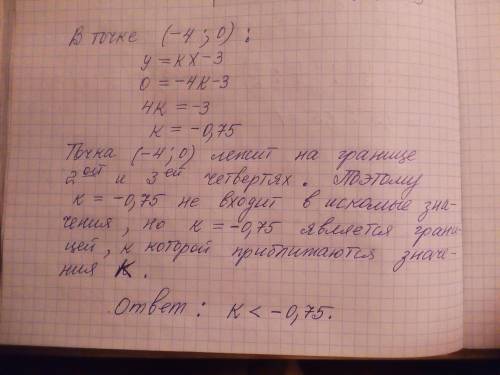 В точке (-4; 0):
y = кx - 3
0 = -4к - 3
4к = -3
к = -0,75
Точка (-4; 0) лежит на границе
2ой и 3ей четвертях. Поэтому
к = -0,75 не входит в искомые зна-
чения, но к = -0,75 является грани-
цей, к которой приближаются значе-
ния к.
Ответ: к < -0,75.